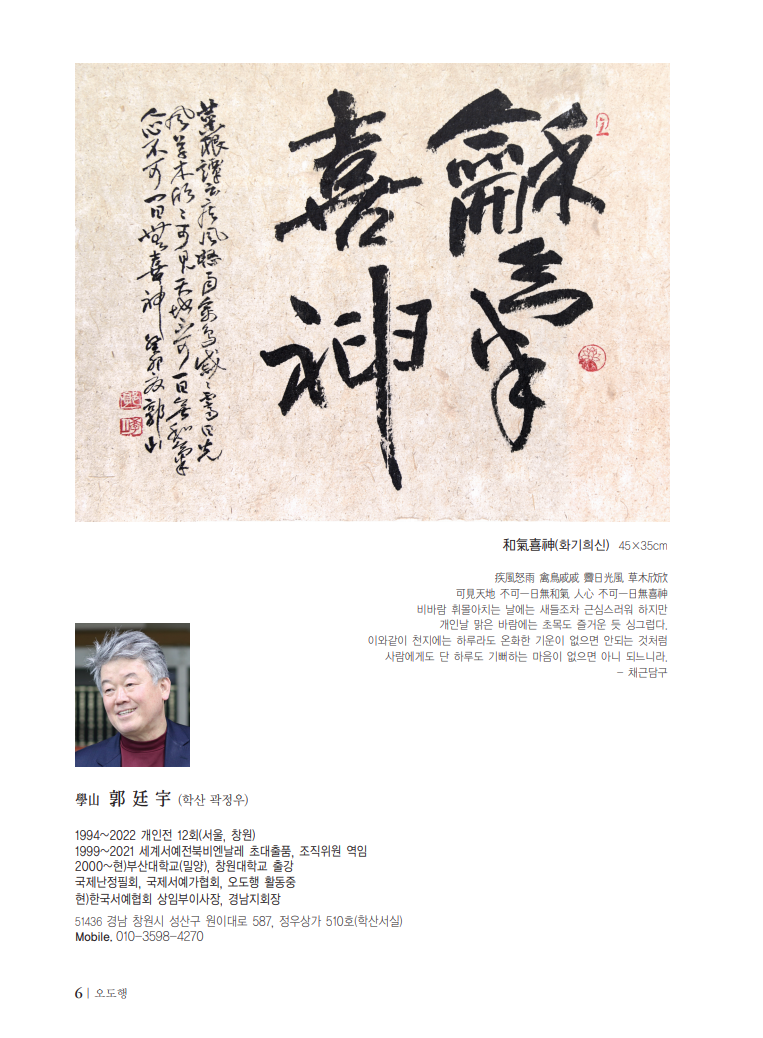 龢氣
喜神
菜根譚云疾風怒雨禽鳥戚〻霽日光
風草木欣〻可見天地不可一日無和氣
人心不可一日無喜神 癸卯
和氣喜神(화기희신) 45×35cm
疾風怒雨 禽鳥戚戚 霽日光風 草木欣欣
可見天地 不可一日無和氣 人心 不可一日無喜神
비바람 휘몰아치는 날에는 새들조차 근심스러워 하지만
개인날 맑은 바람에는 초목도 즐거운 듯 싱그럽다.
이와같이 천지에는 하루라도 온화한 기운이 없으면 안되는 것처럼
사람에게도 단 하루도 기뻐하는 마음이 없으면 아니 되느니라.
- 채근담구
學山 郭廷宇 (학산 곽정우)
1994~2022 개인전 12회(서울, 창원)
1999~2021 세계서예전북비엔날레 초대출품, 조직위원 역임
2000~현)부산대학교(밀양), 창원대학교 출강
국제난정필회, 국제서예가협회, 오도행 활동중
현)한국서예협회 상임부이사장, 경남지회장
51436 경남 창원시 성산구 원이대로 587, 정우상가 510호(학산서실)
Mobile. 010-3598-4270
6 | 오도행